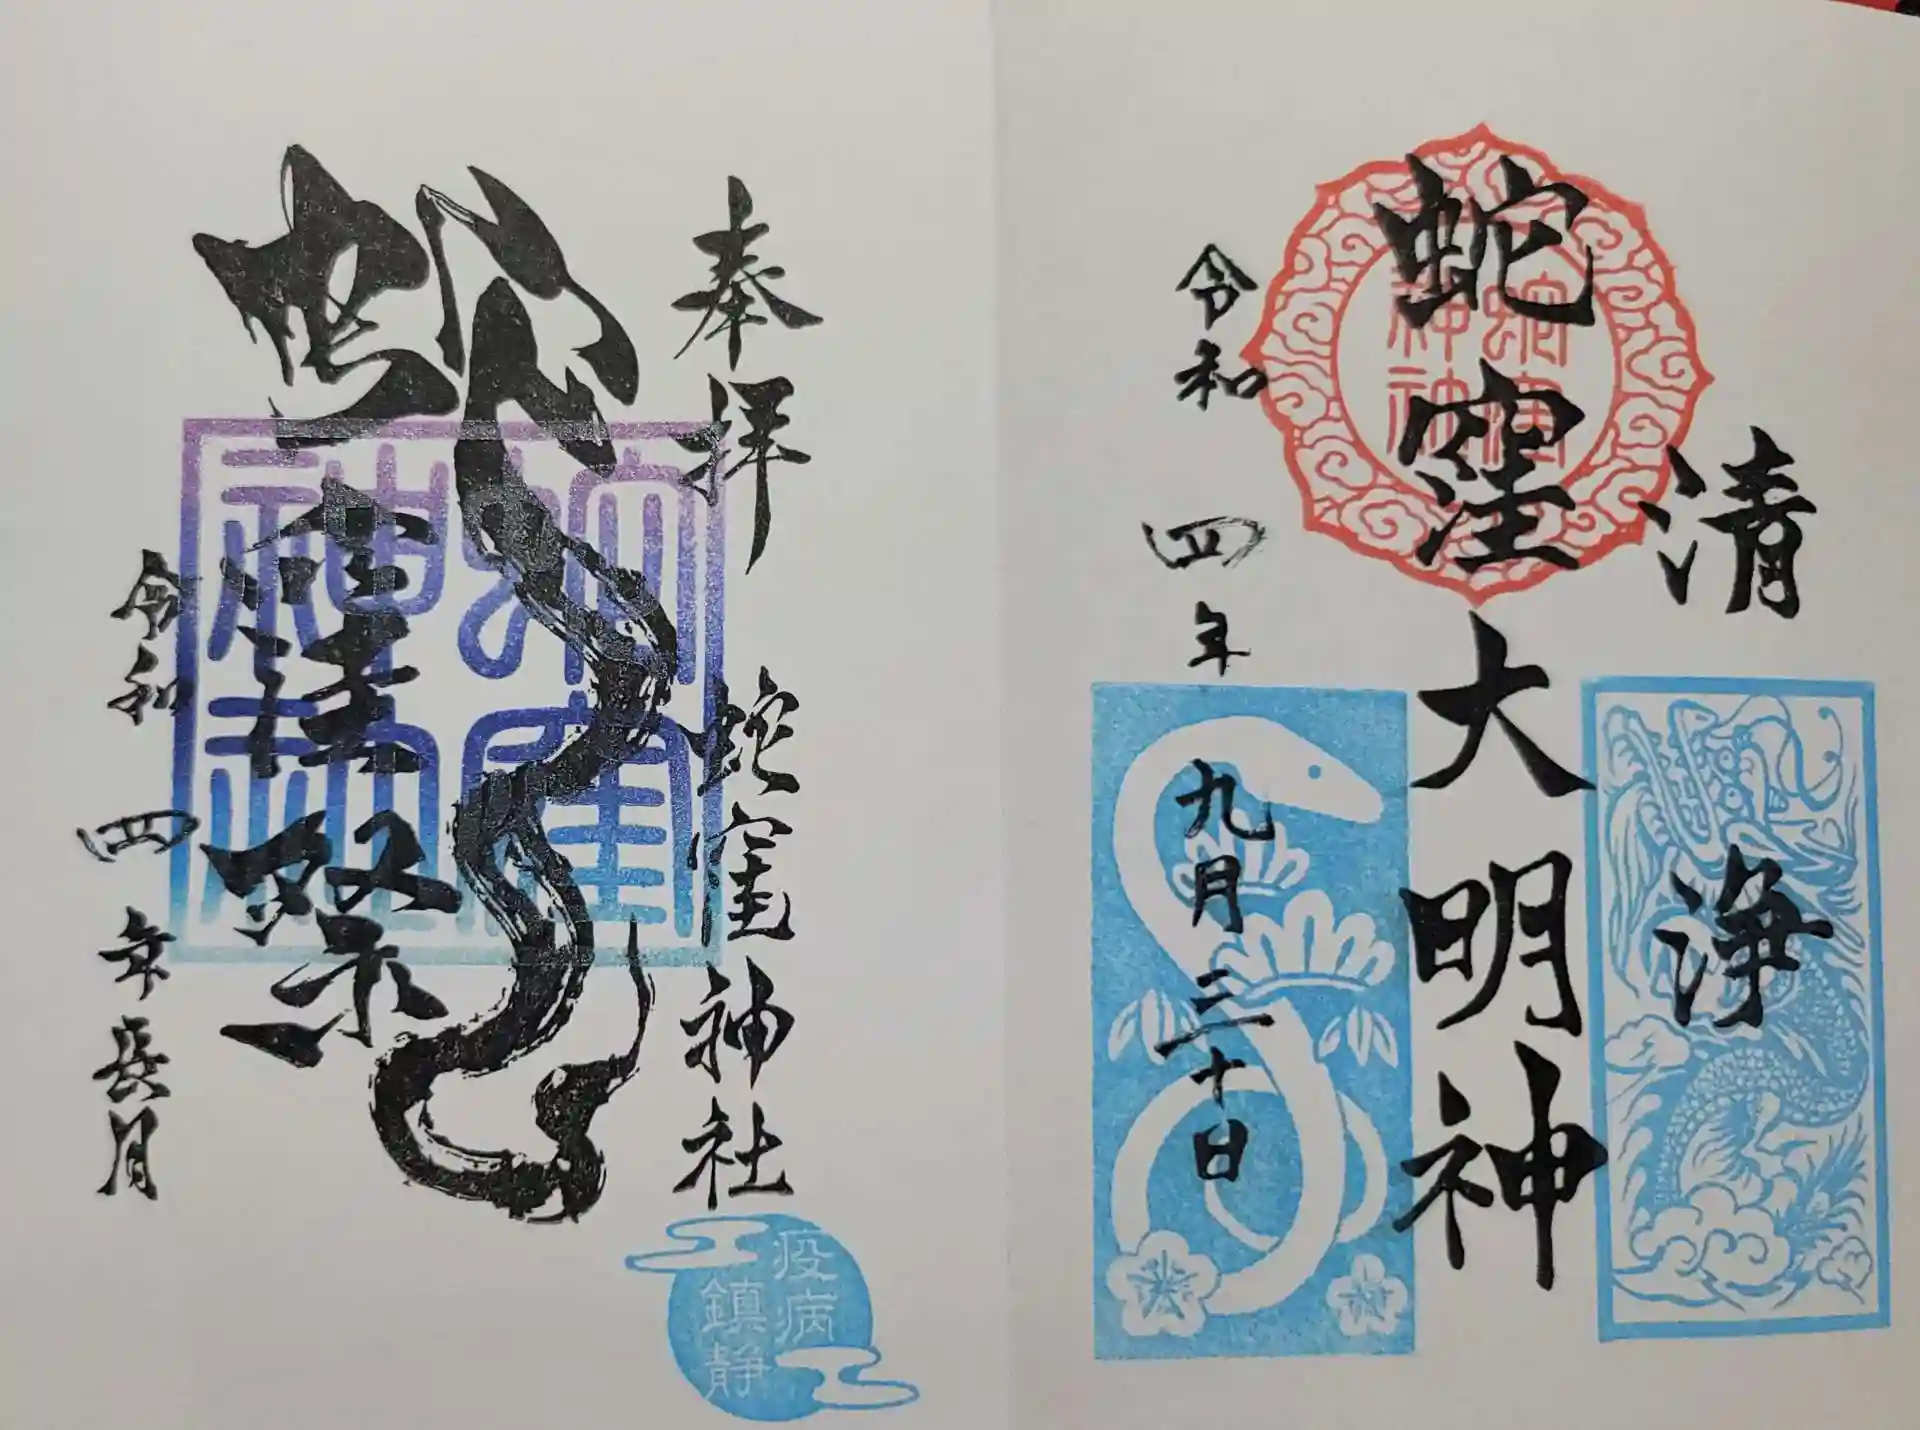 清浄
蛇窪大明神
蛇窪神社
令和四年九月三十日
奉拝 蛇窪神社
蛇窪祭
蛇窪神社
令和四年長月
疫病
鎮静